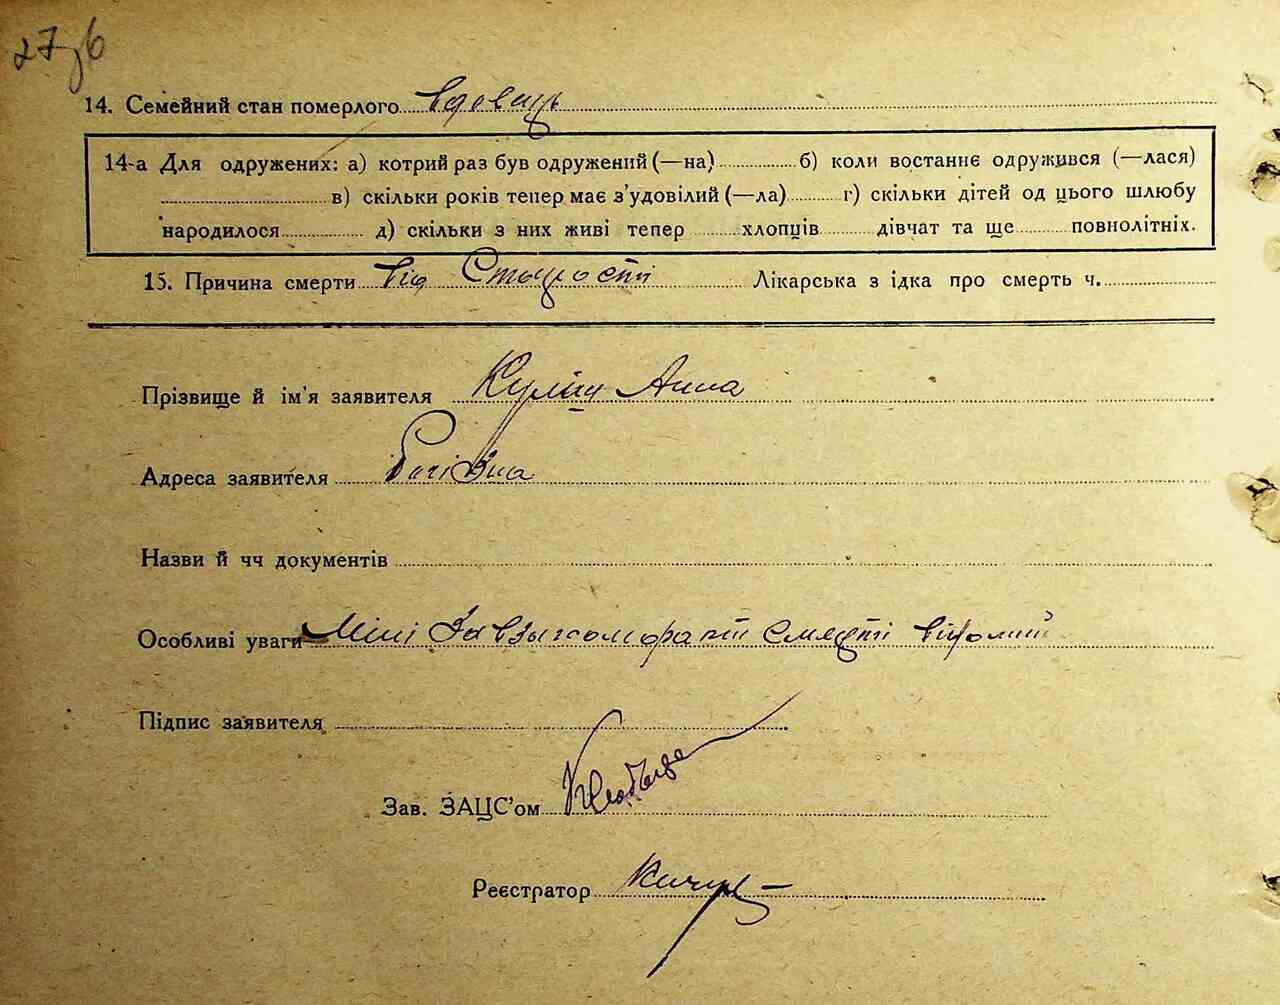 27зв
14. Семейний стан померлого вдовець
14-а Для одружених: а) котрий раз був одружений (—на) б) коли востаннє одружився (—лася)
в) скільки років тепер має з'удовілий (—ла) г) скільки дітей од цього шлюбу
народилося д) скільки з них живі тепер хлопців дівчат та ще повнолітніх.
15. Причина смерти від Старости Лікарська з ідка про смерть ч.
Прізвище й ім'я заявителя Куліш Анна
Адреса заявителя
Назви й чч документів
Особливі уваги Мині смерті відомий
Підпис заявителя
Зав. ЗАЦС'ом
Реєстратор